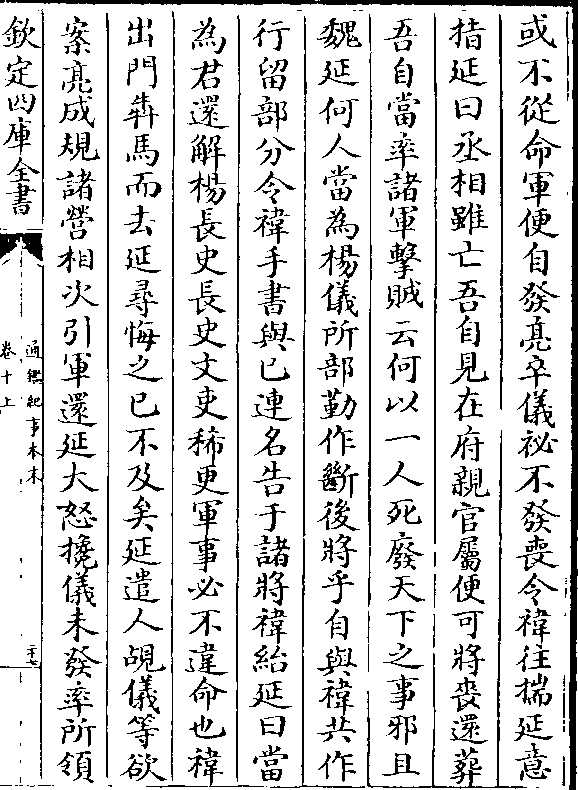 或不從命軍便自發亮卒儀祕不發喪令禕往揣延意
指延曰丞相雖亡吾自見在府親官屬便可將喪還葬
吾自當率諸軍擊賊云何以一人死廢天下之事邪且
魏延何人當為楊儀所部勒作斷後將乎自與禕共作
行留部分令禕手書與已連名告于諸將禕紿延曰當
為君還解楊長史長史文吏稀更軍事必不違命也禕
出門犇馬而去延尋悔之已不及矣延遣人覘儀等欲
案亮成規諸營相次引軍還延大怒攙儀未發率所領
欽定四庫全書
通鑑紀事本末
卷十上
二十七